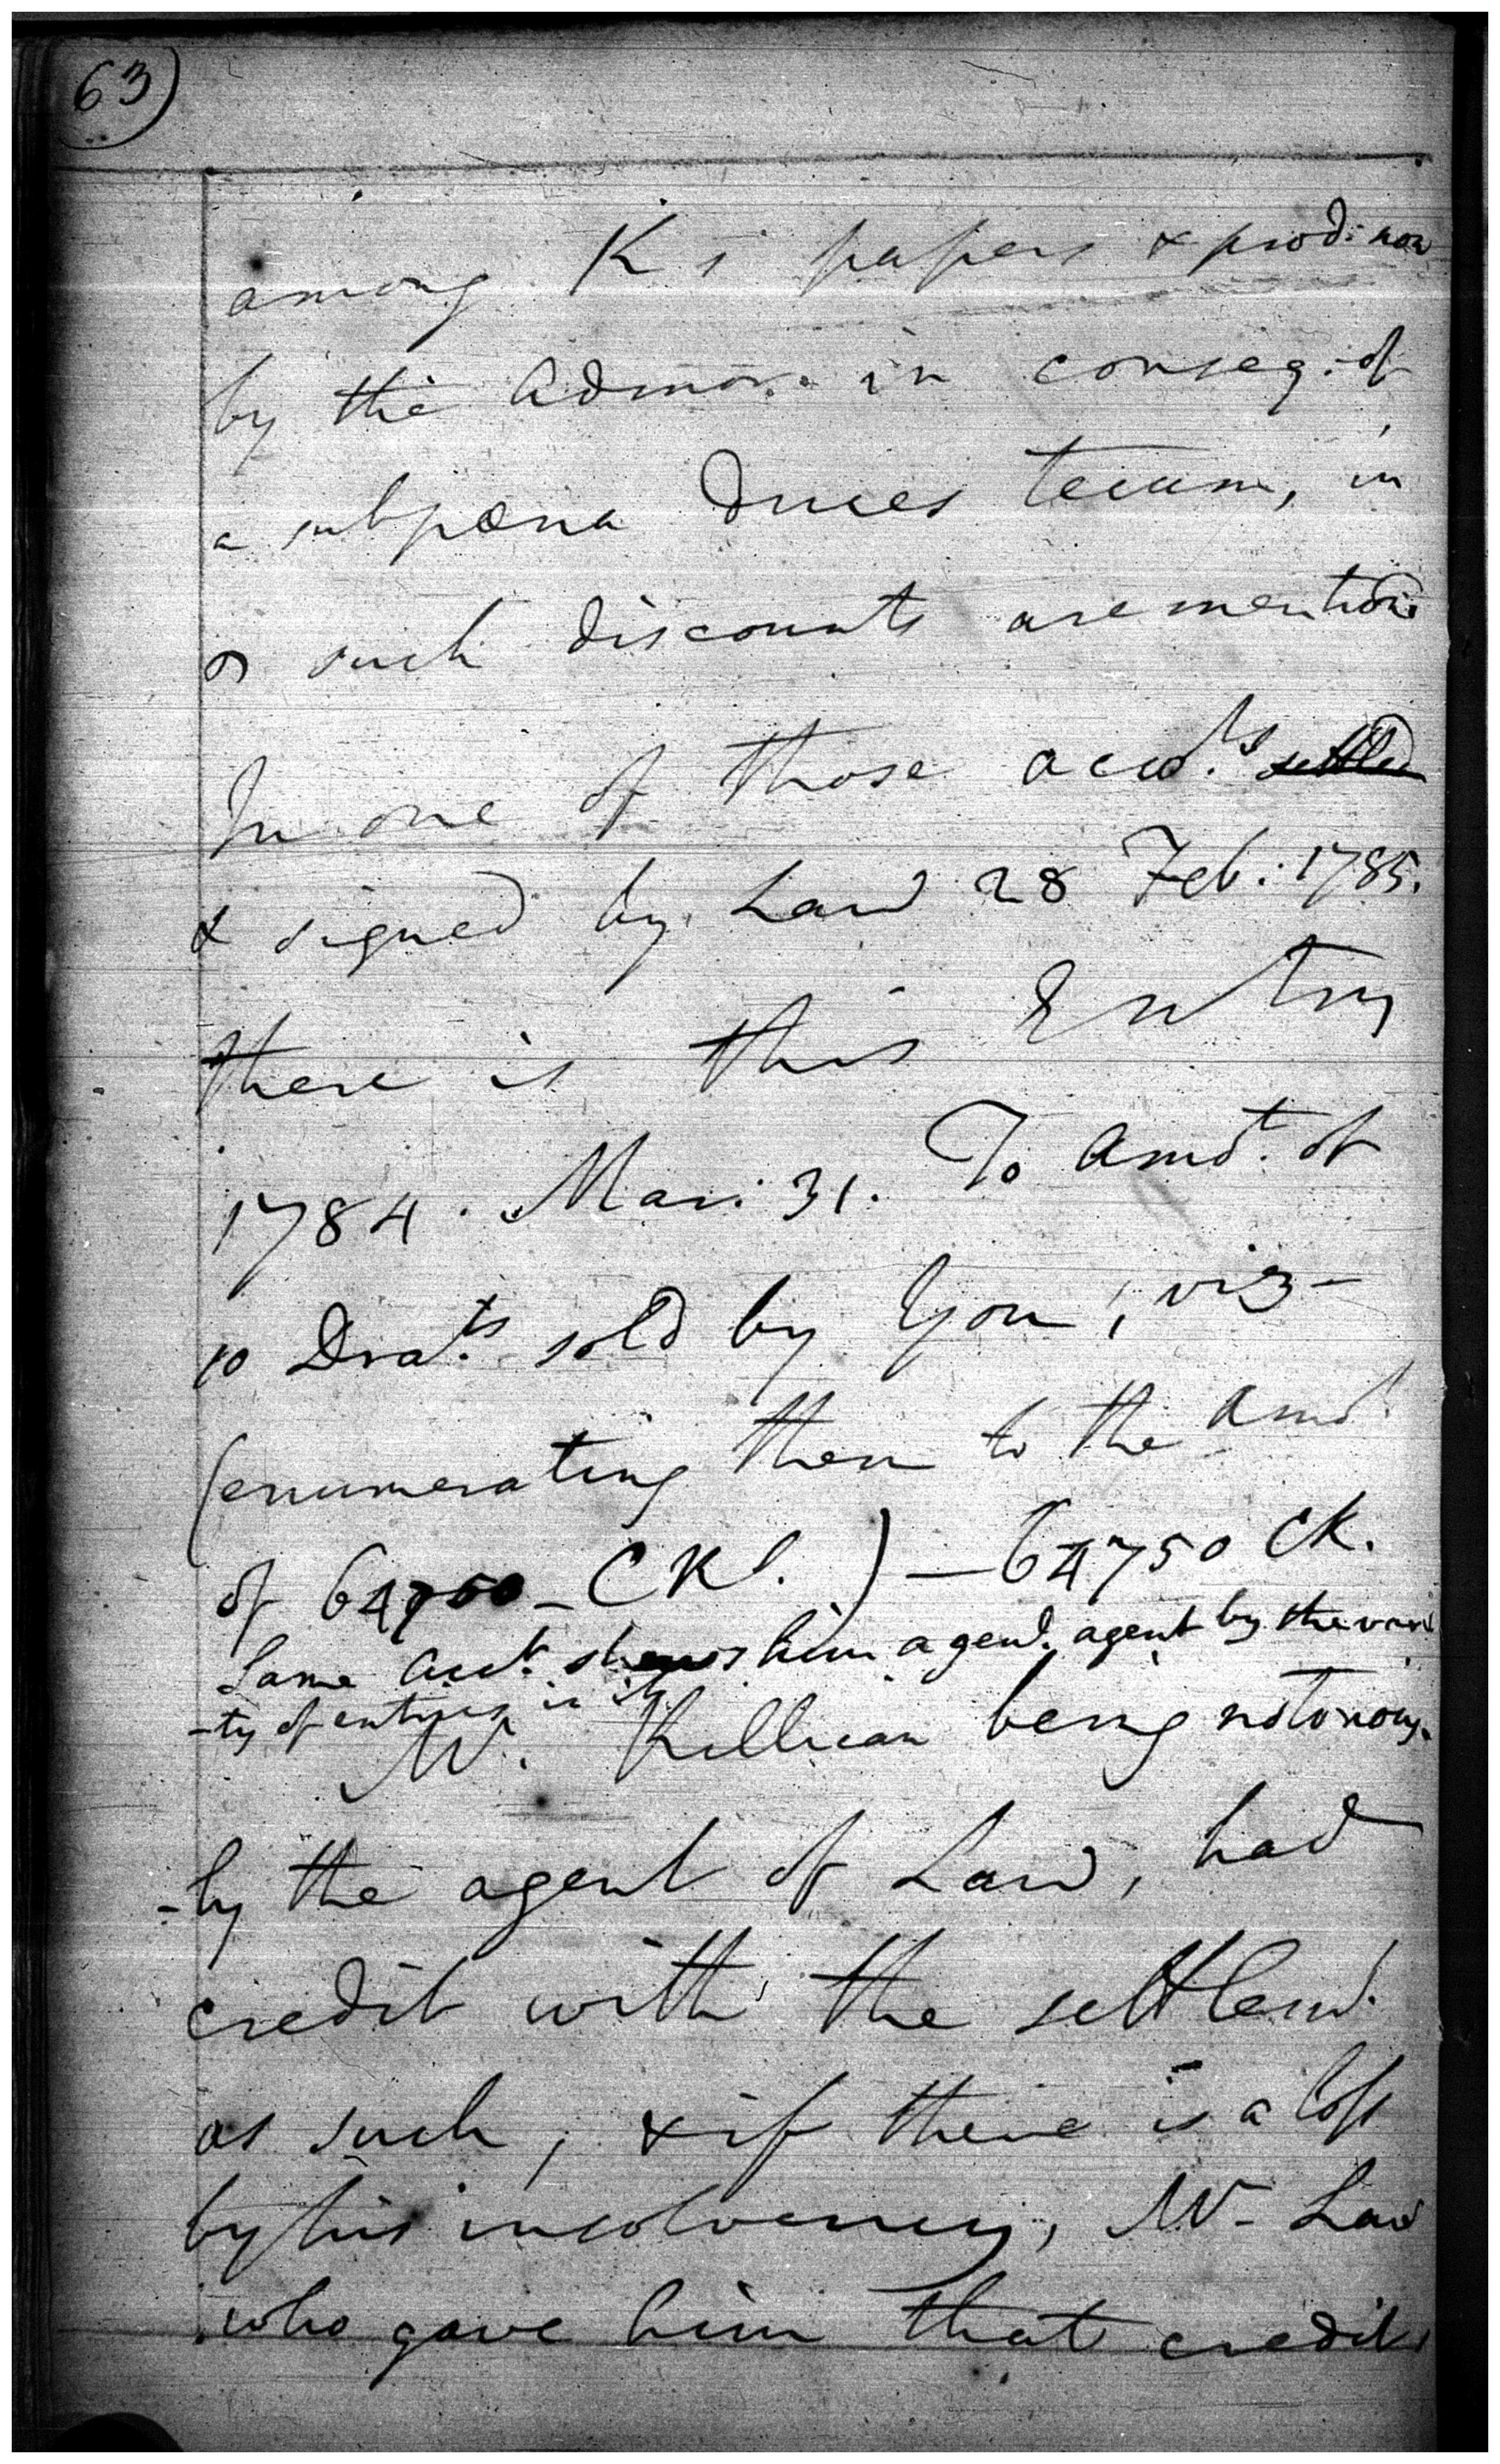 63)
among K's papers & prod: now
by the Admor. in conseq: of
a subpœna Duces tecum, in
such discounts are mentiod:
In one of those accots. settled
& signed by Law 28 Feb: 1785.
there is this Entry
1784. Mar: 31. To Amot. of
10 Drats. sold by You, viz-
(enumerating them to the Amot.
of 64750 - CRs.) — 64750 CR.
Same Acct. shews him a genl. agent by the vari
-ty of entries in it.
Mr. Killican being notorious
-ly the agent of Law, had
credit with the settlemt.
as such, & if there is a loss
by his insolvency, Mr. Law
who gave him that credit,